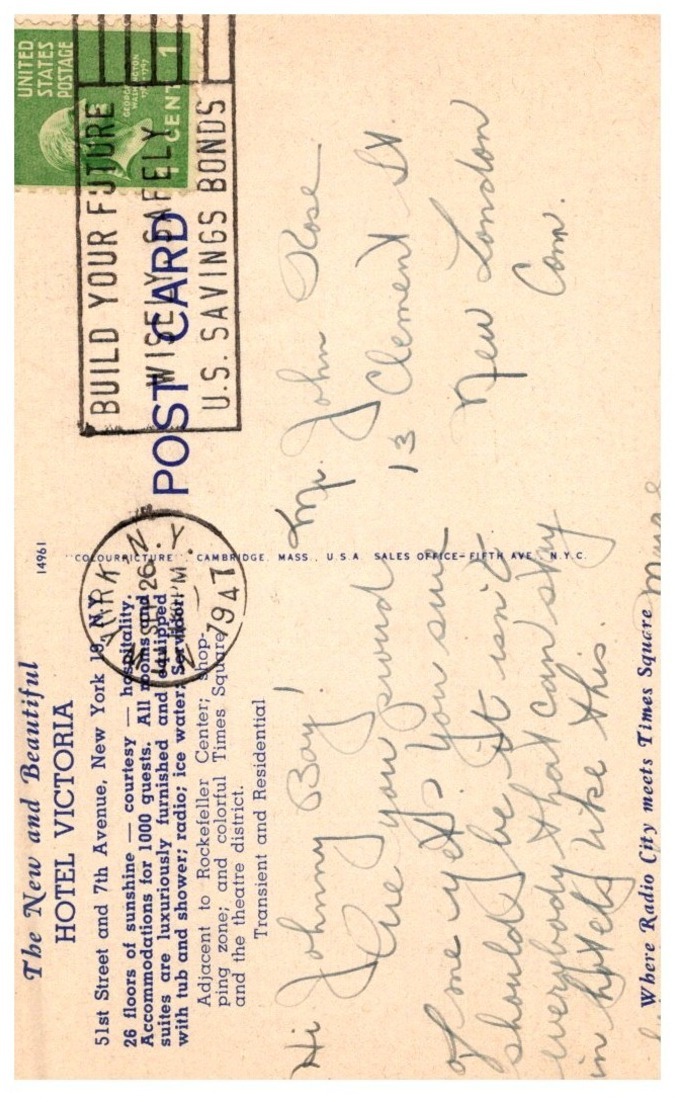 The New and Beautiful
HOTEL VICTORIA
51st Street and 7th Avenue, New York 19, N.Y.
26 floors of sunshine — courtesy — hospitality.
Accommodations for 1000 guests. All rooms and
suites are luxuriously furnished and equipped
with tub and shower; radio; ice water; Servidor.
Adjacent to Rockefeller Center; shop-
ping zone; and colorful Times Square
and the theatre district.
Transient and Residential
Hi Johnny Boy!
Are you proud
of me yet? You sure
should be. It isn't
everybody that can stay
in hotels like this.
Where Radio City meets Times Square
14961
"COLOURPICTURE", CAMBRIDGE, MASS., U.S.A. SALES OFFICE—FIFTH AVE., N.Y.C.
YORK
N.Y.
26
1947
UNITED
STATES
POSTAGE
GEORGE
WASHINGTON
1 CENT
BUILD YOUR FUTURE
WISELY SAFELY
U.S. SAVINGS BONDS
POST CARD
Mr. John Rose.
13 Clement St.
New London
Conn.